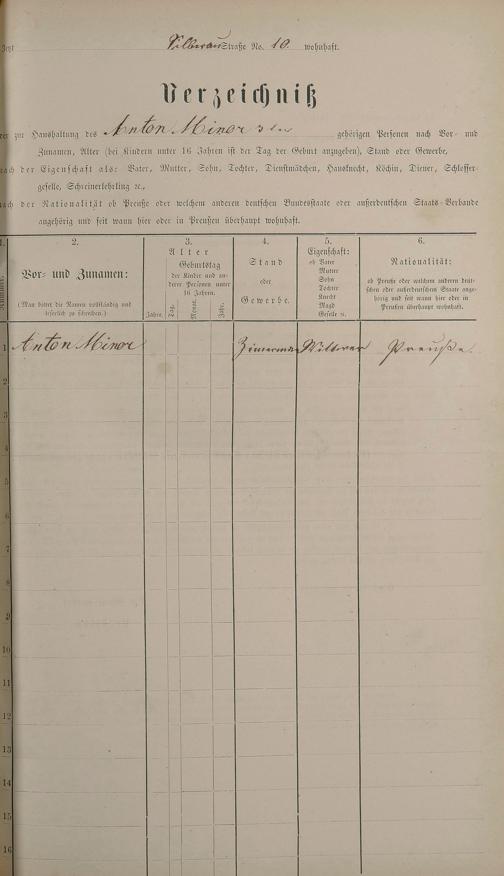 Jetzt Straße No. 10. wohnhaft.
Verzeichniß
der zur Haushaltung des Anton Minor sen gehörigen Personen nach Vor- und
Zunamen, Alter (bei Kindern unter 16 Jahren ist der Tag der Geburt anzugeben), Stand oder Gewerbe,
nach der Eigenschaft als: Vater, Mutter, Sohn, Tochter, Dienstmädchen, Hausknecht, Köchin, Diener, Schlosser-
geselle, Schreinerlehrling ꝛc.,
nach der Nationalität ob Preuße oder welchem anderen deutschen Bundesstaate oder außerdeutschen Staats-Verbande
angehörig und seit wann hier oder in Preußen überhaupt wohnhaft.
1.
Nummer.
2.
Vor- und Zunamen:
(Man bittet die Namen vollständig und
leserlich zu schreiben.)
3.
Alter
Geburtstag
der Kinder und an-
derer Personen unter
16 Jahren.
Jahre.
Tag.
Monat.
Jahr.
4.
Stand
oder
Gewerbe.
5.
Eigenschaft:
ob Vater
Mutter
Sohn
Tochter
Knecht
Magd
Geselle ꝛc.
6.
Nationalität:
ob Preuße oder welchem anderen deut-
schen oder außerdeutschen Staate ange-
hörig und seit wann hier oder in
Preußen überhaupt wohnhaft.
1 Anton Minor Zimerman Wittwer Preuße.
2
3
4
5
6
7
8
9
10
11
12
13
14
15
16